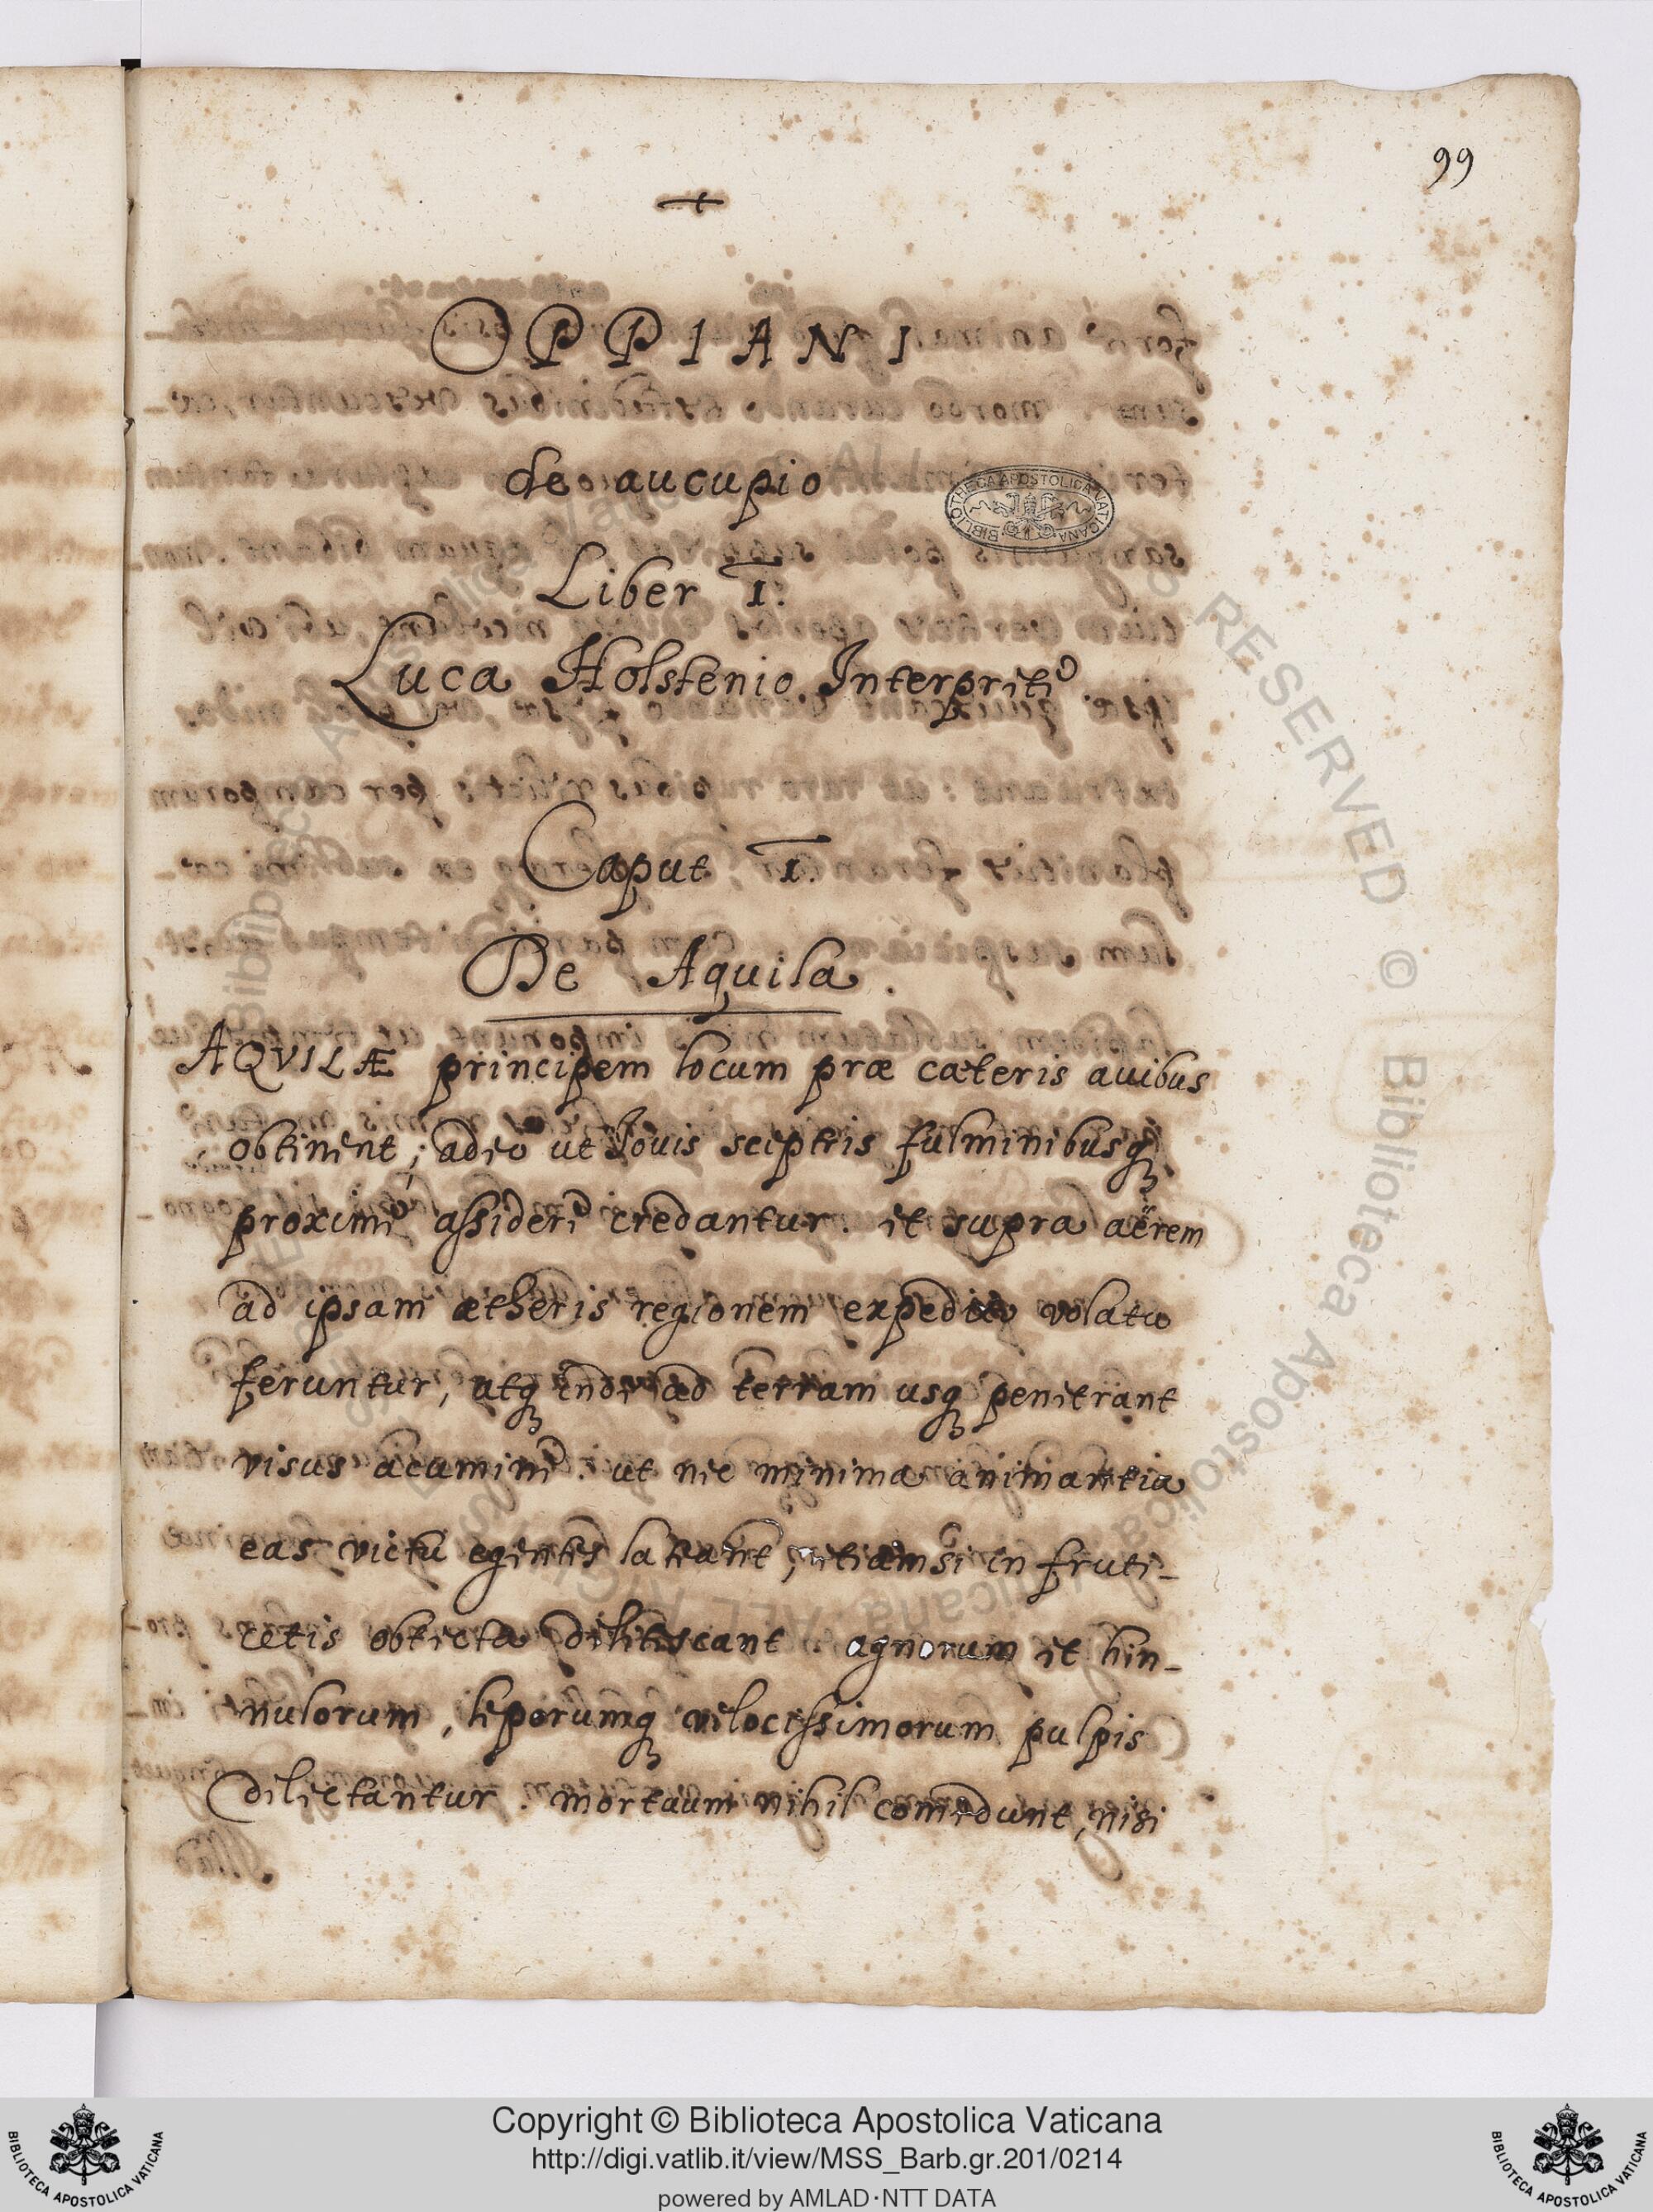 99
OPPIANI
de aucupio
Liber I.
Luca Holstenio Interprete
Caput I.
De Aquila.
AQVILÆ principem locum præ cæteris auibus
obtinent; adeo ut Iouis sceptris fulminibusq;
proximè assidere credantur. et supra aërem
ad ipsam ætheris regionem expedito volatu
feruntur, atq; inde ad terram usq; penetrant
visus acumine. ut nec minima animantia
eas victu egentes lateant, etiamsi in fruti-
cetis obtecta delitescant. agnorum et hin-
nulorum, leporumq; velocissimorum pulpis
delectantur. mortuum nihil comedunt, nisi
BIBLIOTHECA APOSTOLICA VATICANA
RESERVED © Biblioteca Apostolica Vaticana
Copyright © Biblioteca Apostolica Vaticana
http://digi.vatlib.it/view/MSS_Barb.gr.201/0214
powered by AMLAD·NTT DATA
BIBLIOTECA APOSTOLICA VATICANA
BIBLIOTECA APOSTOLICA VATICANA